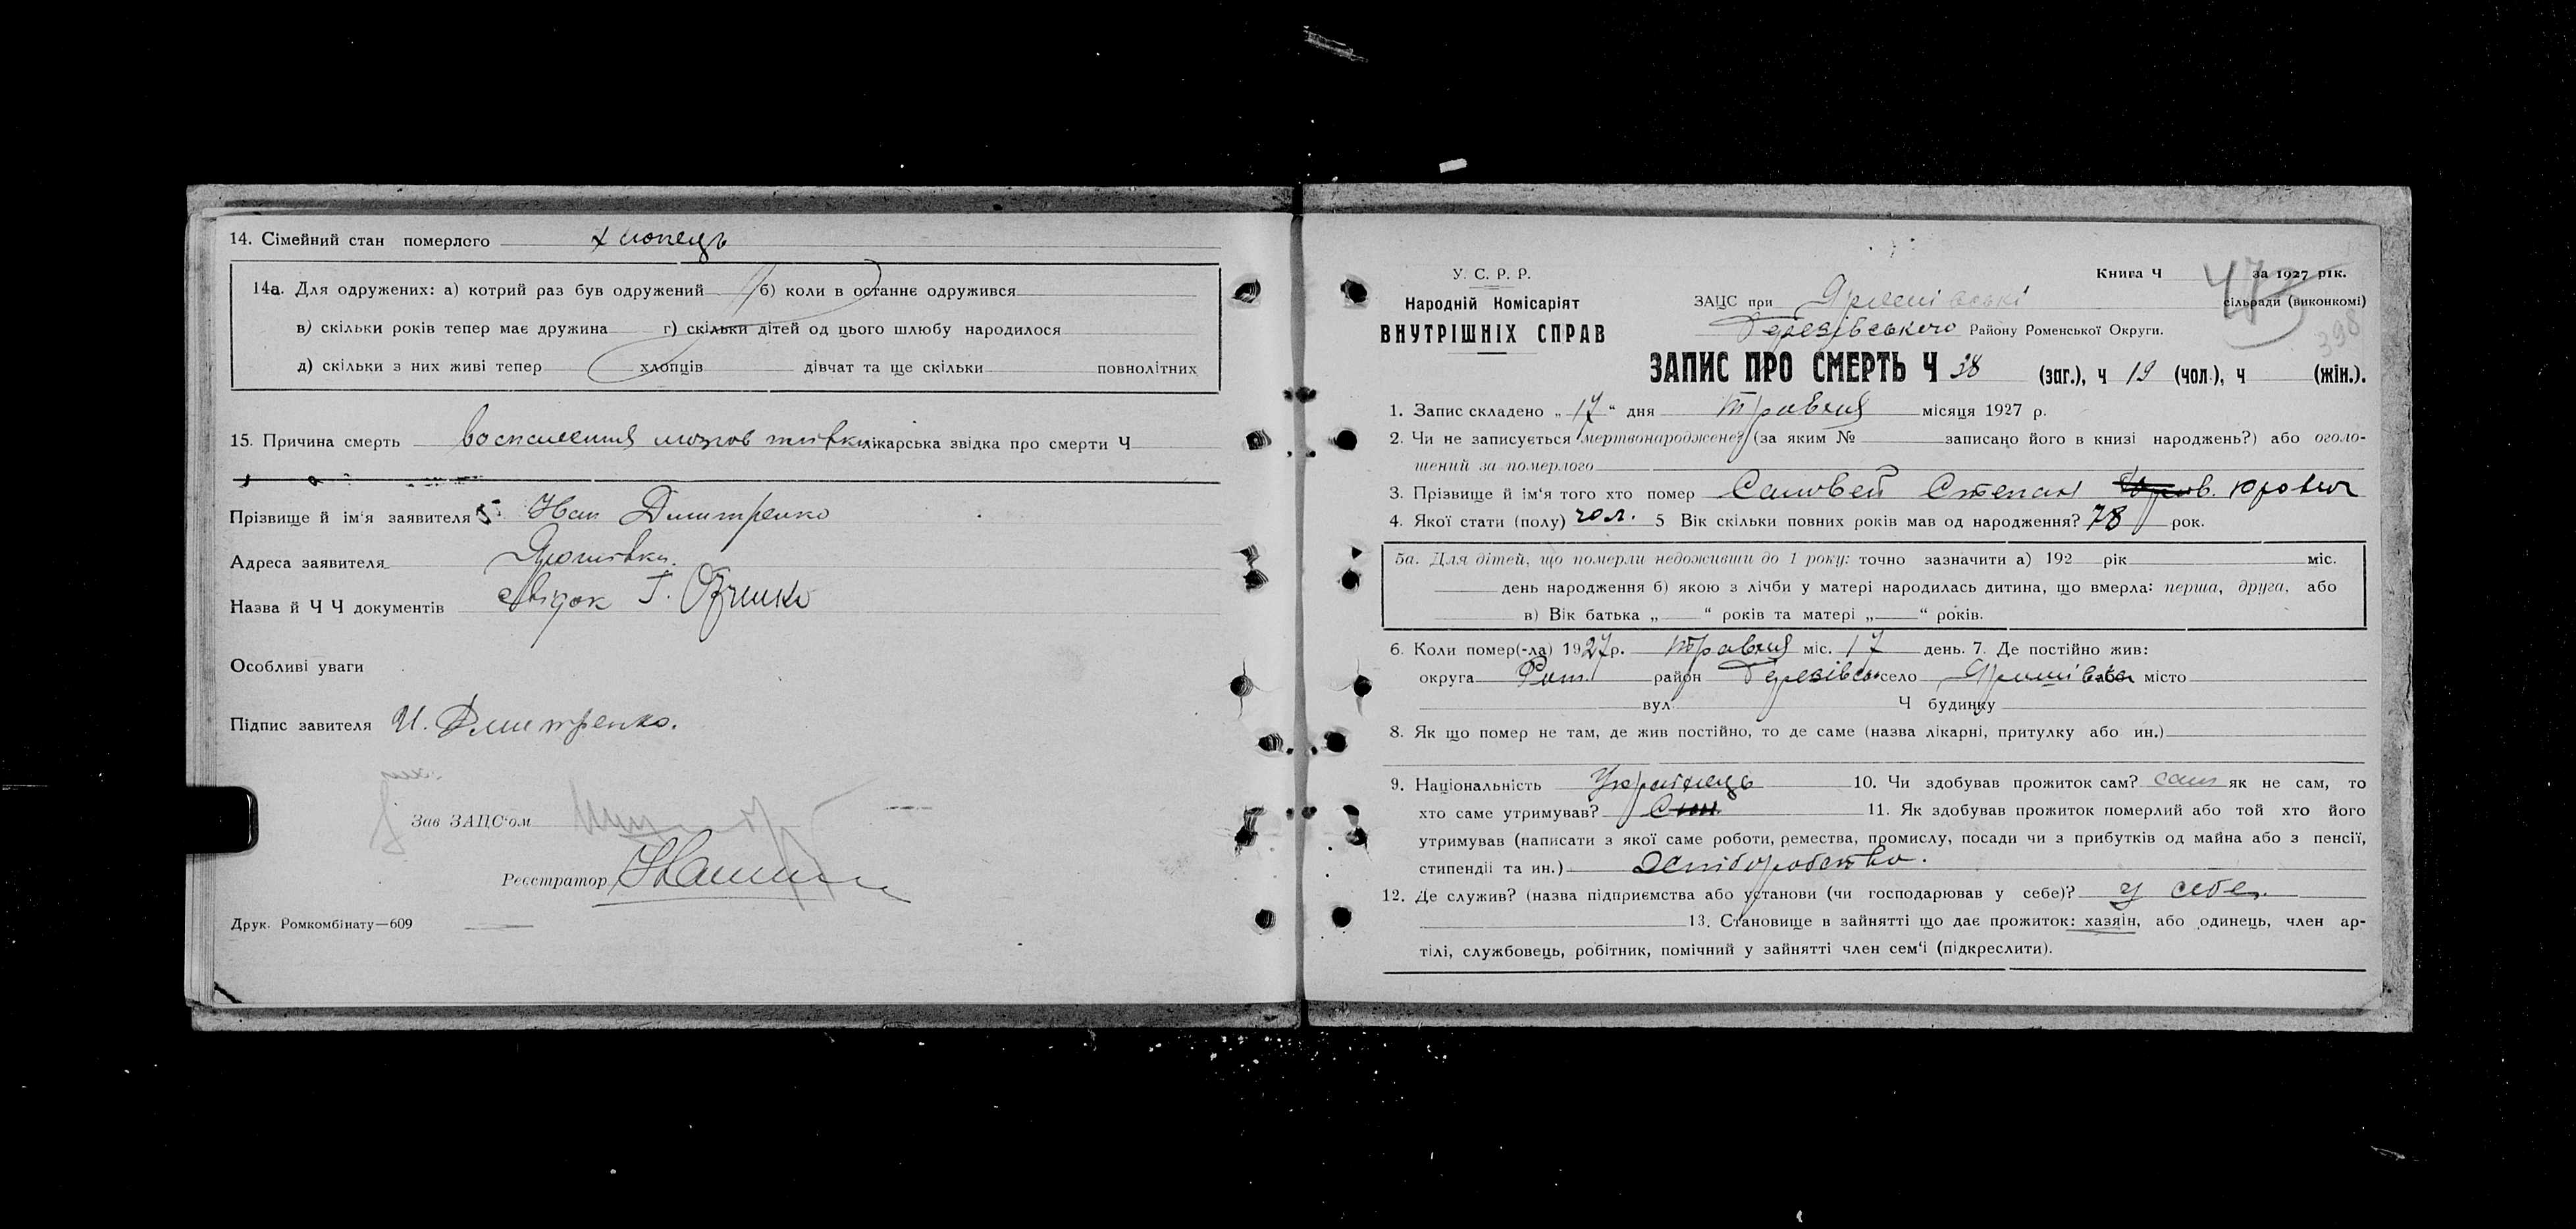 14. Сімейний стан померлого хлопець
14а. Для одружених: а) котрий раз був одружений б) коли в останнє одружився
в) скільки років тепер має дружина г) скільки дітей од цього шлюбу народилося
д) скільки з них живі тепер хлопців дівчат та ще скільки повнолітних
15. Причина смерть воспаления мозгов лікарська звідка про смерти Ч
Прізвище й ім'я заявителя Іван Дмитренко
Адреса заявителя Ярошівка.
Назва й Ч Ч документів свідок Г.
Особливі уваги
Підпис завителя И. Дмитренко.
Зав ЗАЦС'ом
Реєстратор
Друк. Ромкомбінату—609
У. С. Р. Р.
Народній Комісаріят
ВНУТРІШНІХ СПРАВ
Книга Ч 47 за 1927 рік.
398
ЗАЦС при сільради (виконкомі)
Району Роменської Округи.
ЗАПИС ПРО СМЕРТЬ Ч 38 (заг.), ч 19 (чол.), ч (жін.).
1. Запис складено „ 17 “ дня травня місяця 1927 р.
2. Чи не записується мертвонароджене? (за яким № записано його в книзі народжень?) або оголо-
шений за померлого
3. Прізвище й ім'я того хто помер Соловей Степан Юрович
4. Якої стати (полу) чол. 5 Вік скільки повних років мав од народження? 78 рок.
5а. Для дітей, що померли недоживши до 1 року: точно зазначити а) 192 рік міс.
день народження б) якою з лічби у матері народилась дитина, що вмерла: перша, друга, або
в) Вік батька „ “ років та матері „ “ років.
6. Коли помер(-ла) 1927р. травня міс. 17 день. 7. Де постійно жив:
округа Ром. район село Ярошівка або місто
вул. Ч будинку
8. Як що помер не там, де жив постійно, то де саме (назва лікарні, притулку або ин.)
9. Національність Українець 10. Чи здобував прожиток сам? сам як не сам, то
хто саме утримував? Син 11. Як здобував прожиток померлий або той хто його
утримував (написати з якої саме роботи, ремества, промислу, посади чи з прибутків од майна або з пенсії,
стипендії та ин.) хліборобство.
12. Де служив? (назва підприємства або установи (чи господарював у себе)? у себе.
13. Становище в зайнятті що дає прожиток: хазяїн, або одинець, член ар-
тілі, службовець, робітник, помічний у зайнятті член сем'ї (підкреслити).